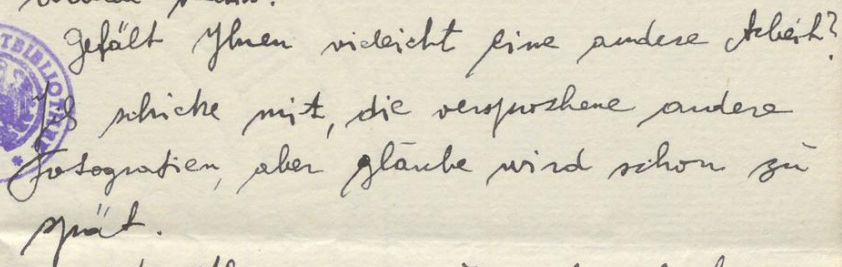 Gefält Ihnen vieleicht eine andere Arbeit?
Ich schicke mit, die versprochene andere
Fotografien, aber glaube wird schon zu
spät.